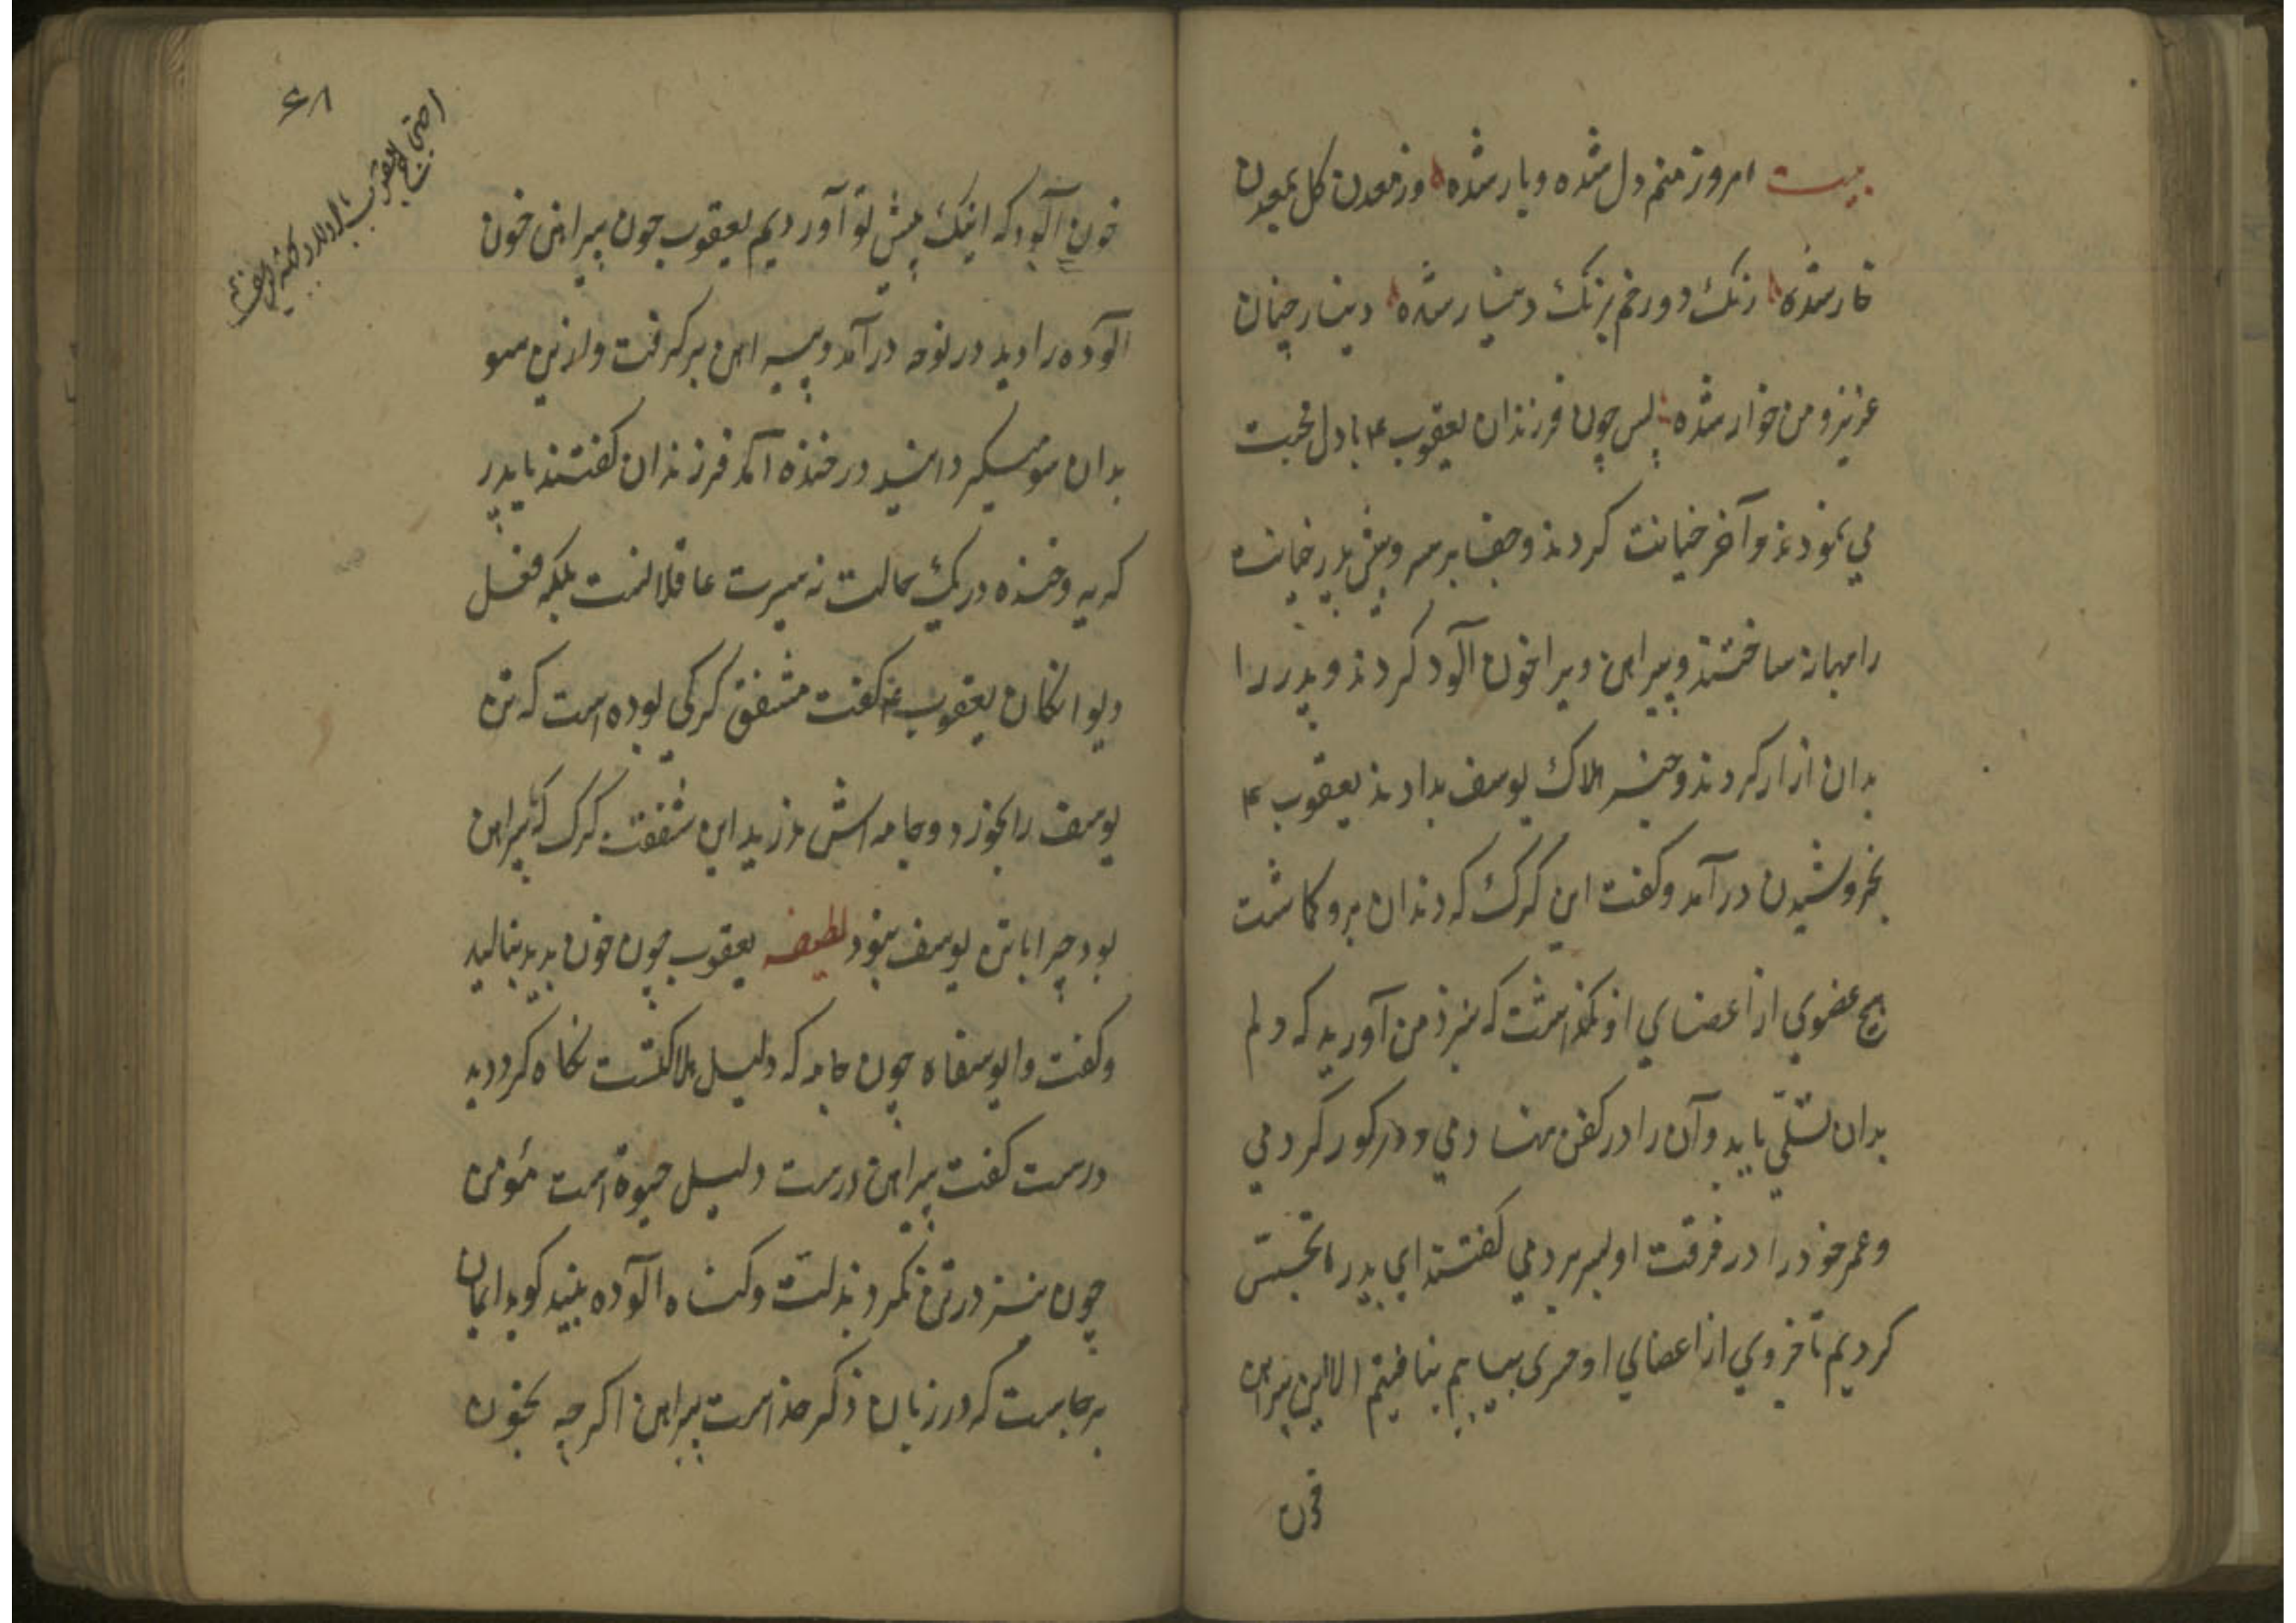 بیت امروز منم دل شده و یار شده وز معدن کل بمعدن
خار شده رنک دو رخم برنک دینار شده دینار چنان
عزیز و من خوار شده پس چون فرزندان یعقوب ع با دل محبت
می نمودند و آخر خیانت کردند و جفا بر سر و پیش پدر
را بهانه ساختند و پیراهن ویرا خون آلود کردند و پدر را
بدان ازار کردند و خبر هلاک یوسف بدادند یعقوب ع
بخروشیدن درآمد و کفت این کرک که دندان برو کماشت
هیچ عضوی از اعضای او نکذاشت که بنزد من آورید که دلم
بدان تسلّی یابد و آن را در کفن نهادمی و در کور کردمی
و عمر خود را در فرقت او بسر بردمی کفتند ای بدر تجسس
کردیم تا جزوی از اعضای او بیابیم نیافتیم الا این پیراهن
خون
۶۸
خون آلود که اینک پیش تو آوردیم یعقوب چون پیراهن خون
آلوده را دید در نوحه درآمد و پیراهن برکرفت و ازین سو
بدان سو میکردانید در خنده آمد فرزندان کفتند یا پدر
کریه و خنده در یک حالت نه سیرت عاقلانست بلکه فعل
دیوانکان یعقوب ع کفت مشفق کرکی بوده است که تن
یوسف را بخورد و جامه اش ندرید این شفقت کرک که پیراهن
بود چرا با تن یوسف نبود لطیفه یعقوب چون خون بدید بنالید
و کفت وا یوسفاه چون جامه که دلیل هلاکتست نکاه کرد دید
درست کفت پیراهن درست دلیل حیوة است مؤمن
چون نیز در تن نکرد بذلت و کناه آلوده بیند کوید ایمان
برجاست که در زبان ذکر خداست پیراهن اکرچه بخون